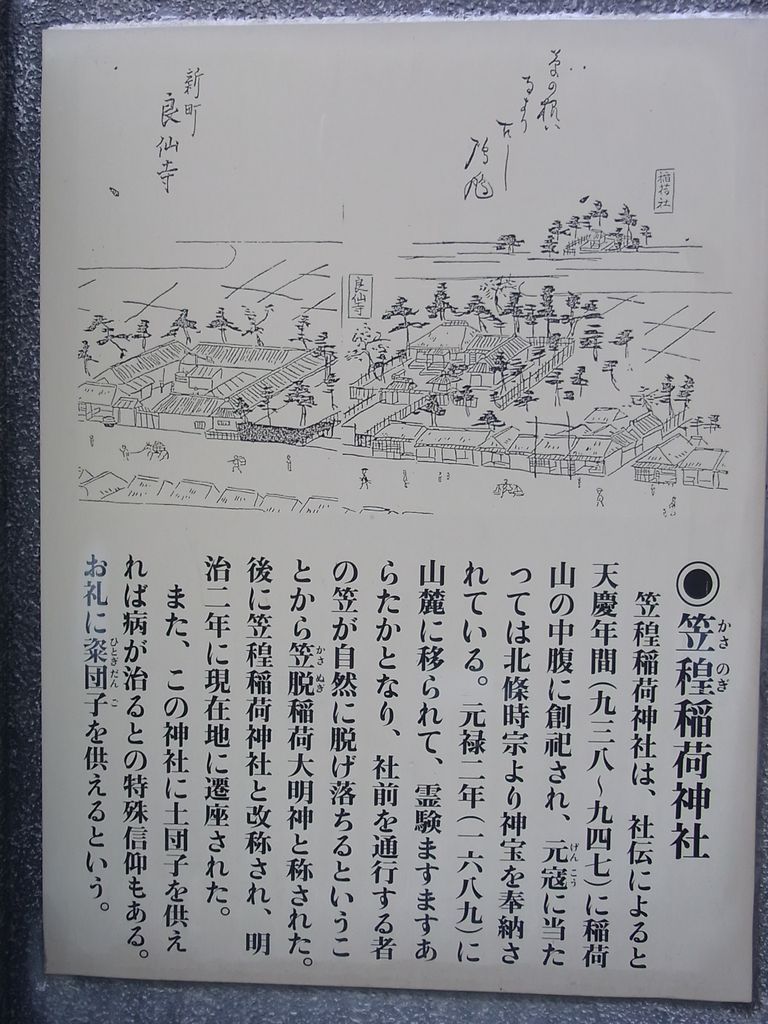 稲荷社
新町
良仙寺
良仙寺
笠䅣稲荷神社
かさ のぎ
笠䅣稲荷神社は、社伝によると
天慶年間(九三八～九四七)に稲荷
山の中腹に創祀され、元寇に当た
げん こう
っては北條時宗より神宝を奉納さ
れている。元禄二年(一六八九)に
山麓に移られて、霊験ますますあ
らたかとなり、社前を通行する者
の笠が自然に脱げ落ちるというこ
とから笠脱稲荷大明神と称された。
かさ ぬぎ
後に笠䅣稲荷神社と改称され、明
治二年に現在地に遷座された。
また、この神社に土団子を供え
れば病が治るとの特殊信仰もある。
お礼に粢団子を供えるという。
ひとぎ だん ご